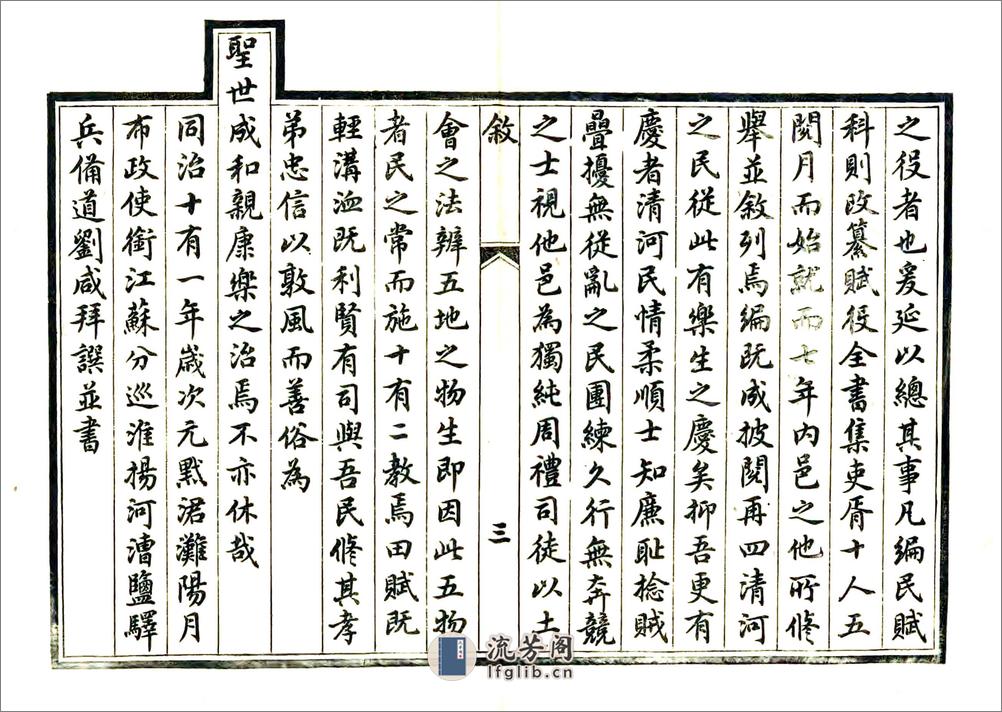 之役者也爰延以總其事凡編民賦
科則改纂賦役全書集吏胥十人五
閱月而始就而七年內邑之他所修
舉並敘列焉編既成披閱再四清河
之民從此有樂生之慶矣抑吾更有
慶者清河民情柔順士知廉耻捻賊
疊擾無從亂之民團練久行無奔競
之士視他邑為獨純周禮司徒以土
敘
三
會之法辨五地之物生即因此五物
者民之常而施十有二教焉田賦既
輕溝洫既利賢有司與吾民修其孝
弟忠信以敦風而善俗為
聖世咸和親康樂之治焉不亦休哉
同治十有一年歲次元黓涒灘陽月
布政使銜江蘇分巡淮揚河漕鹽驛
兵備道劉咸拜譔並書
流芳阁
lfglib.cn